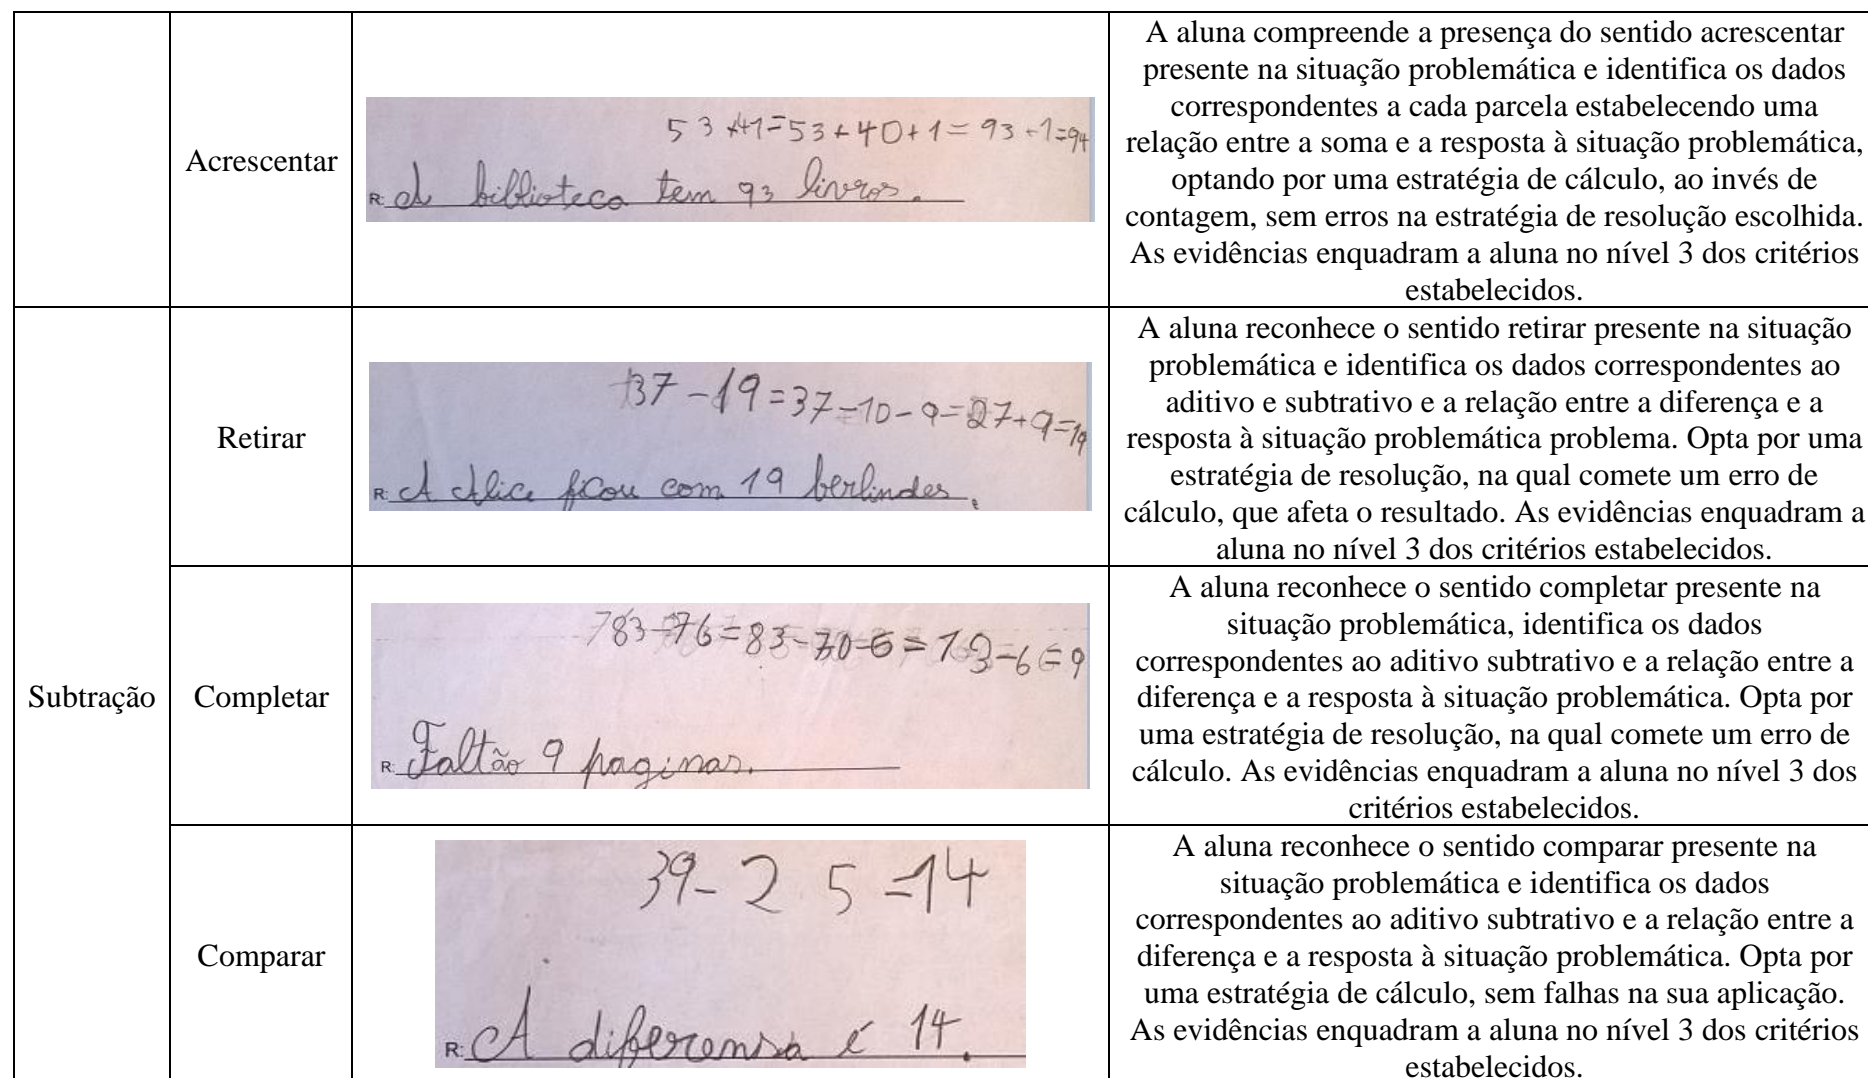 Acrescentar
53+41=53+40+1=93+1=94
R: A biblioteca tem 93 livros.
A aluna compreende a presença do sentido acrescentar
presente na situação problemática e identifica os dados
correspondentes a cada parcela estabelecendo uma
relação entre a soma e a resposta à situação problemática,
optando por uma estratégia de cálculo, ao invés de
contagem, sem erros na estratégia de resolução escolhida.
As evidências enquadram a aluna no nível 3 dos critérios
estabelecidos.
Subtração
Retirar
37-19=37-10-9=27+9=19
R: A Alice ficou com 19 berlindes.
A aluna reconhece o sentido retirar presente na situação
problemática e identifica os dados correspondentes ao
aditivo e subtrativo e a relação entre a diferença e a
resposta à situação problemática problema. Opta por uma
estratégia de resolução, na qual comete um erro de
cálculo, que afeta o resultado. As evidências enquadram a
aluna no nível 3 dos critérios estabelecidos.
Completar
83-76=83-70-6=13-6=9
R: Faltão 9 paginas.
A aluna reconhece o sentido completar presente na
situação problemática, identifica os dados
correspondentes ao aditivo subtrativo e a relação entre a
diferença e a resposta à situação problemática. Opta por
uma estratégia de resolução, na qual comete um erro de
cálculo. As evidências enquadram a aluna no nível 3 dos
critérios estabelecidos.
Comparar
39-25=14
R: A diferensa é 14.
A aluna reconhece o sentido comparar presente na
situação problemática e identifica os dados
correspondentes ao aditivo subtrativo e a relação entre a
diferença e a resposta à situação problemática. Opta por
uma estratégia de cálculo, sem falhas na sua aplicação.
As evidências enquadram a aluna no nível 3 dos critérios
estabelecidos.